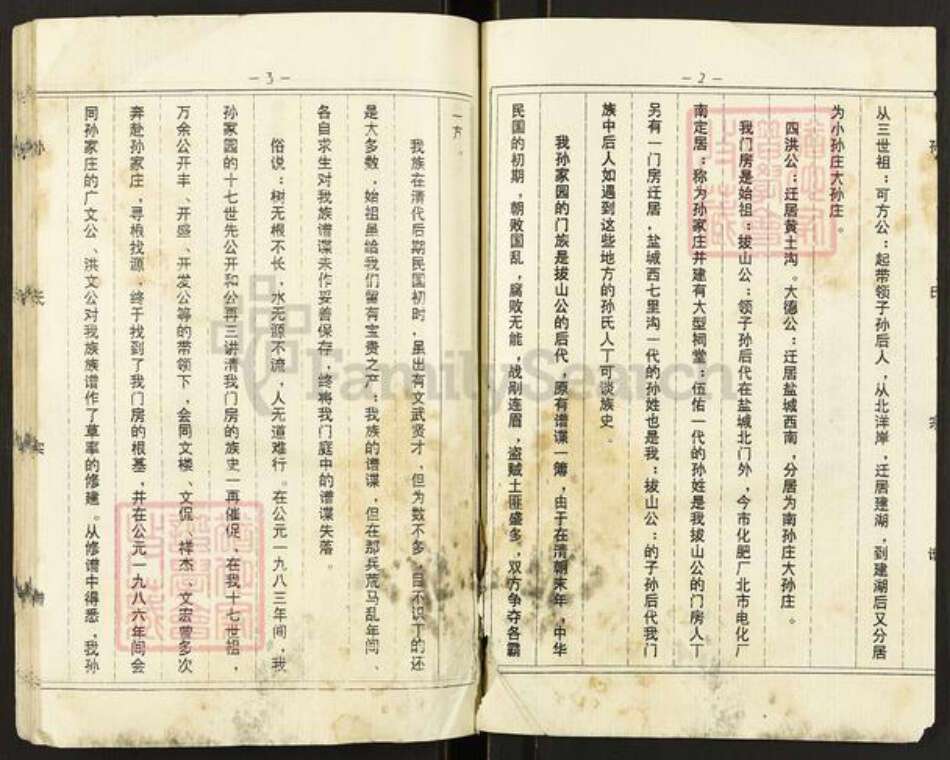 -2-
从三世祖：可方公：起带领子孙后人，从北洋岸，迁居建湖，到建湖后又分居
为小孙庄大孙庄。
四洪公：迁居黄土沟。大德公：迁居盐城西南，分居为南孙庄大孙庄。
我门房是始祖：拔山公：领子孙后代在盐城北门外，今市化肥厂北市电化厂
南定居：称为孙家庄并建有大型祠堂：伍佑一代的孙姓是我拔山公的门房人丁
另有一门房迁居，盐城西七里沟一代的孙姓也是我：拔山公：的子孙后代我门
族中后人如遇到这些地方的孙氏人丁可谈族史．
我孙家园的门族是拔山公的后代，原有谱谍一簿，由于在清朝末年，中华
民国的初期，朝败国乱，腐败无能，战剐连眉，盗贼土匪盛多，双方争夺各霸
-3-
一方．
我族在清代后期民国初时，虽出有文武贤才，但为数不多，目不识丁的还
是大多数，始祖虽给我们留有宝贵之产：我族的谱谍，但在那兵荒马乱年间、
各自求生对我族谱谍未作妥善保存，终将我门庭中的谱谍失落。
俗说：树无根不长，水无源不流，人无道难行。在公元一九八三年间，我
孙家园的十七世先公开和公再三讲清我门房的族史一再催促、在我十七世祖，
万余公开丰、开盛、开发公等的带领下，会同文楼、文侃、祥杰、文宏曾多次
奔赴孙家庄，寻根找源．终于找到了我门房的根基，并在公元一九八六年间会
同孙家庄的广文公、洪文公对我族族谱作了草率的修建。从修谱中得悉，我孙
FamilySearch